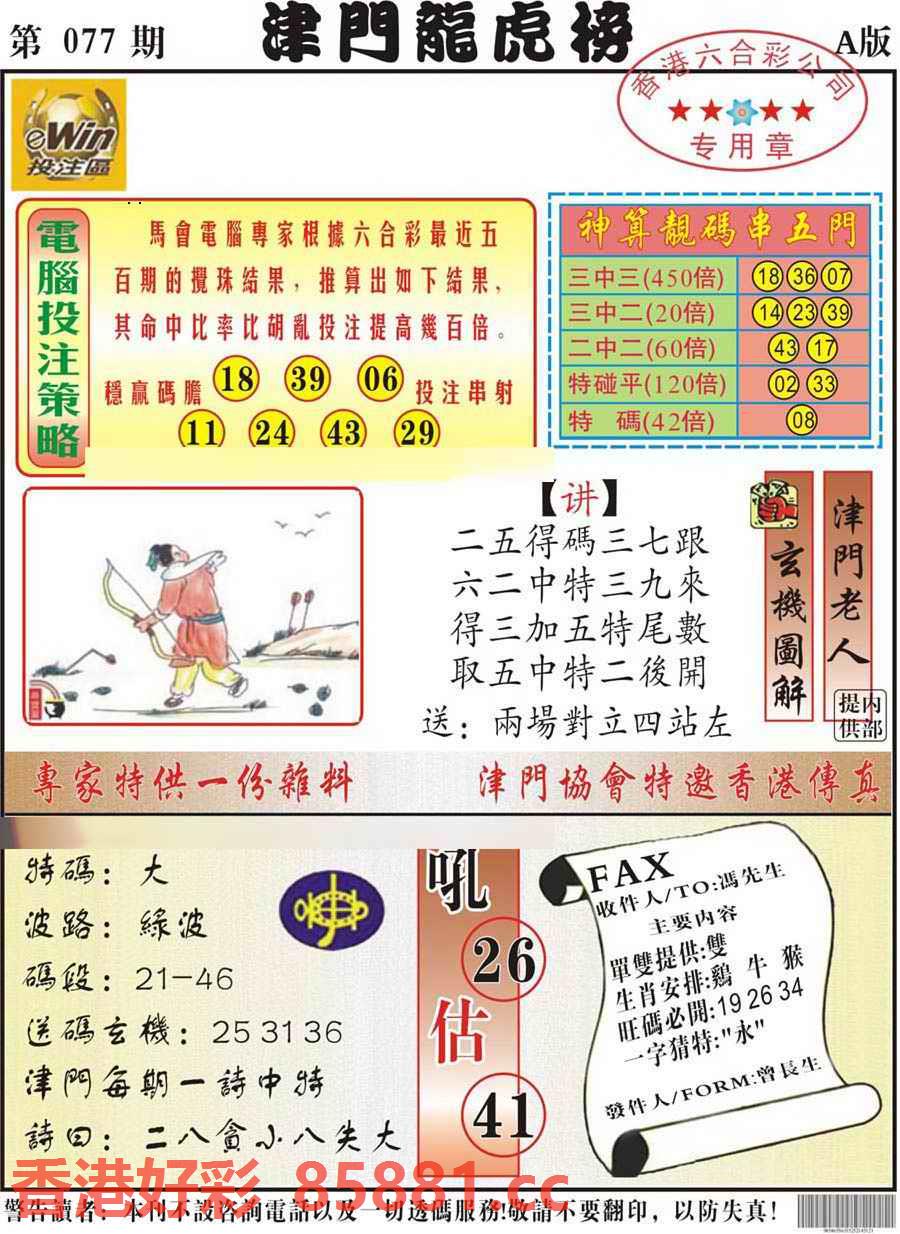 第 077 期
津門龍虎榜
A版
香港六合彩公司
专用章
eWin
投注區
電腦投注策略
馬會電腦專家根據六合彩最近五
百期的攪珠結果，推算出如下結果，
其命中比率比胡亂投注提高幾百倍。
穩贏碼膽 18 39 06 投注串射
11 24 43 29
神算靚碼串五門
三中三(450倍) 18 36 07
三中二(20倍) 14 23 39
二中二(60倍) 43 17
特碰平(120倍) 02 33
特 碼(42倍) 08
【讲】
二五得碼三七跟
六二中特三九來
得三加五特尾數
取五中特二後開
送：兩場對立四站左
玄機圖解
津門老人
提内
供部
專家特供一份雜料
津門協會特邀香港傳真
特碼：大
波路：綠波
碼段：21-46
送碼玄機：25 31 36
津門每期一詩中特
詩曰：二八貪小八失大
吼
26
估
41
FAX
收件人/TO:馮先生
主要内容
單雙提供:雙
生肖安排:鷄 牛 猴
旺碼必開:19 26 34
一字猜特:"永"
發件人/FORM:曾長生
香港好彩 85881.cc
警告讀者：本刊不設咨詢電話以及一切透碼服務!敬請不要翻印，以防失真!